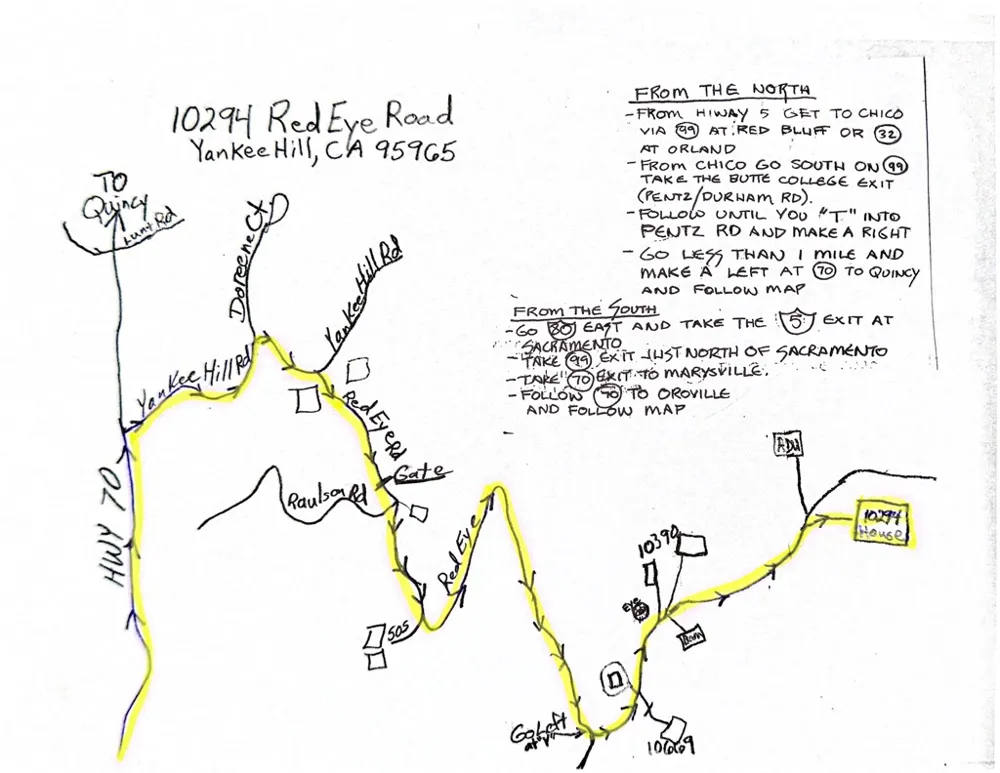 10294 Red Eye Road
Yankee Hill, CA 95965
FROM THE NORTH
- FROM HIWAY 5 GET TO CHICO
VIA 99 AT RED BLUFF OR 32
AT ORLAND
- FROM CHICO GO SOUTH ON 99
TAKE THE BUTTE COLLEGE EXIT
(PENTZ/DURHAM RD).
- FOLLOW UNTIL YOU "T" INTO
PENTZ RD AND MAKE A RIGHT
- GO LESS THAN 1 MILE AND
MAKE A LEFT AT 70 TO QUINCY
AND FOLLOW MAP
FROM THE SOUTH
- GO 80 EAST AND TAKE THE 5 EXIT AT
SACRAMENTO
- TAKE 99 EXIT JUST NORTH OF SACRAMENTO
- TAKE 70 EXIT TO MARYSVILLE.
- FOLLOW 70 TO OROVILLE
AND FOLLOW MAP
TO
Quincy
Lunt Rd
Doreene Ct
Yankee Hill Rd
Yankee Hill Rd
Red Eye Rd
Gate
Raulson Rd
HWY 70
Red Eye
505
Go Left
at "Y"
10669
Eye
10390
Barn
ADU
10294
House